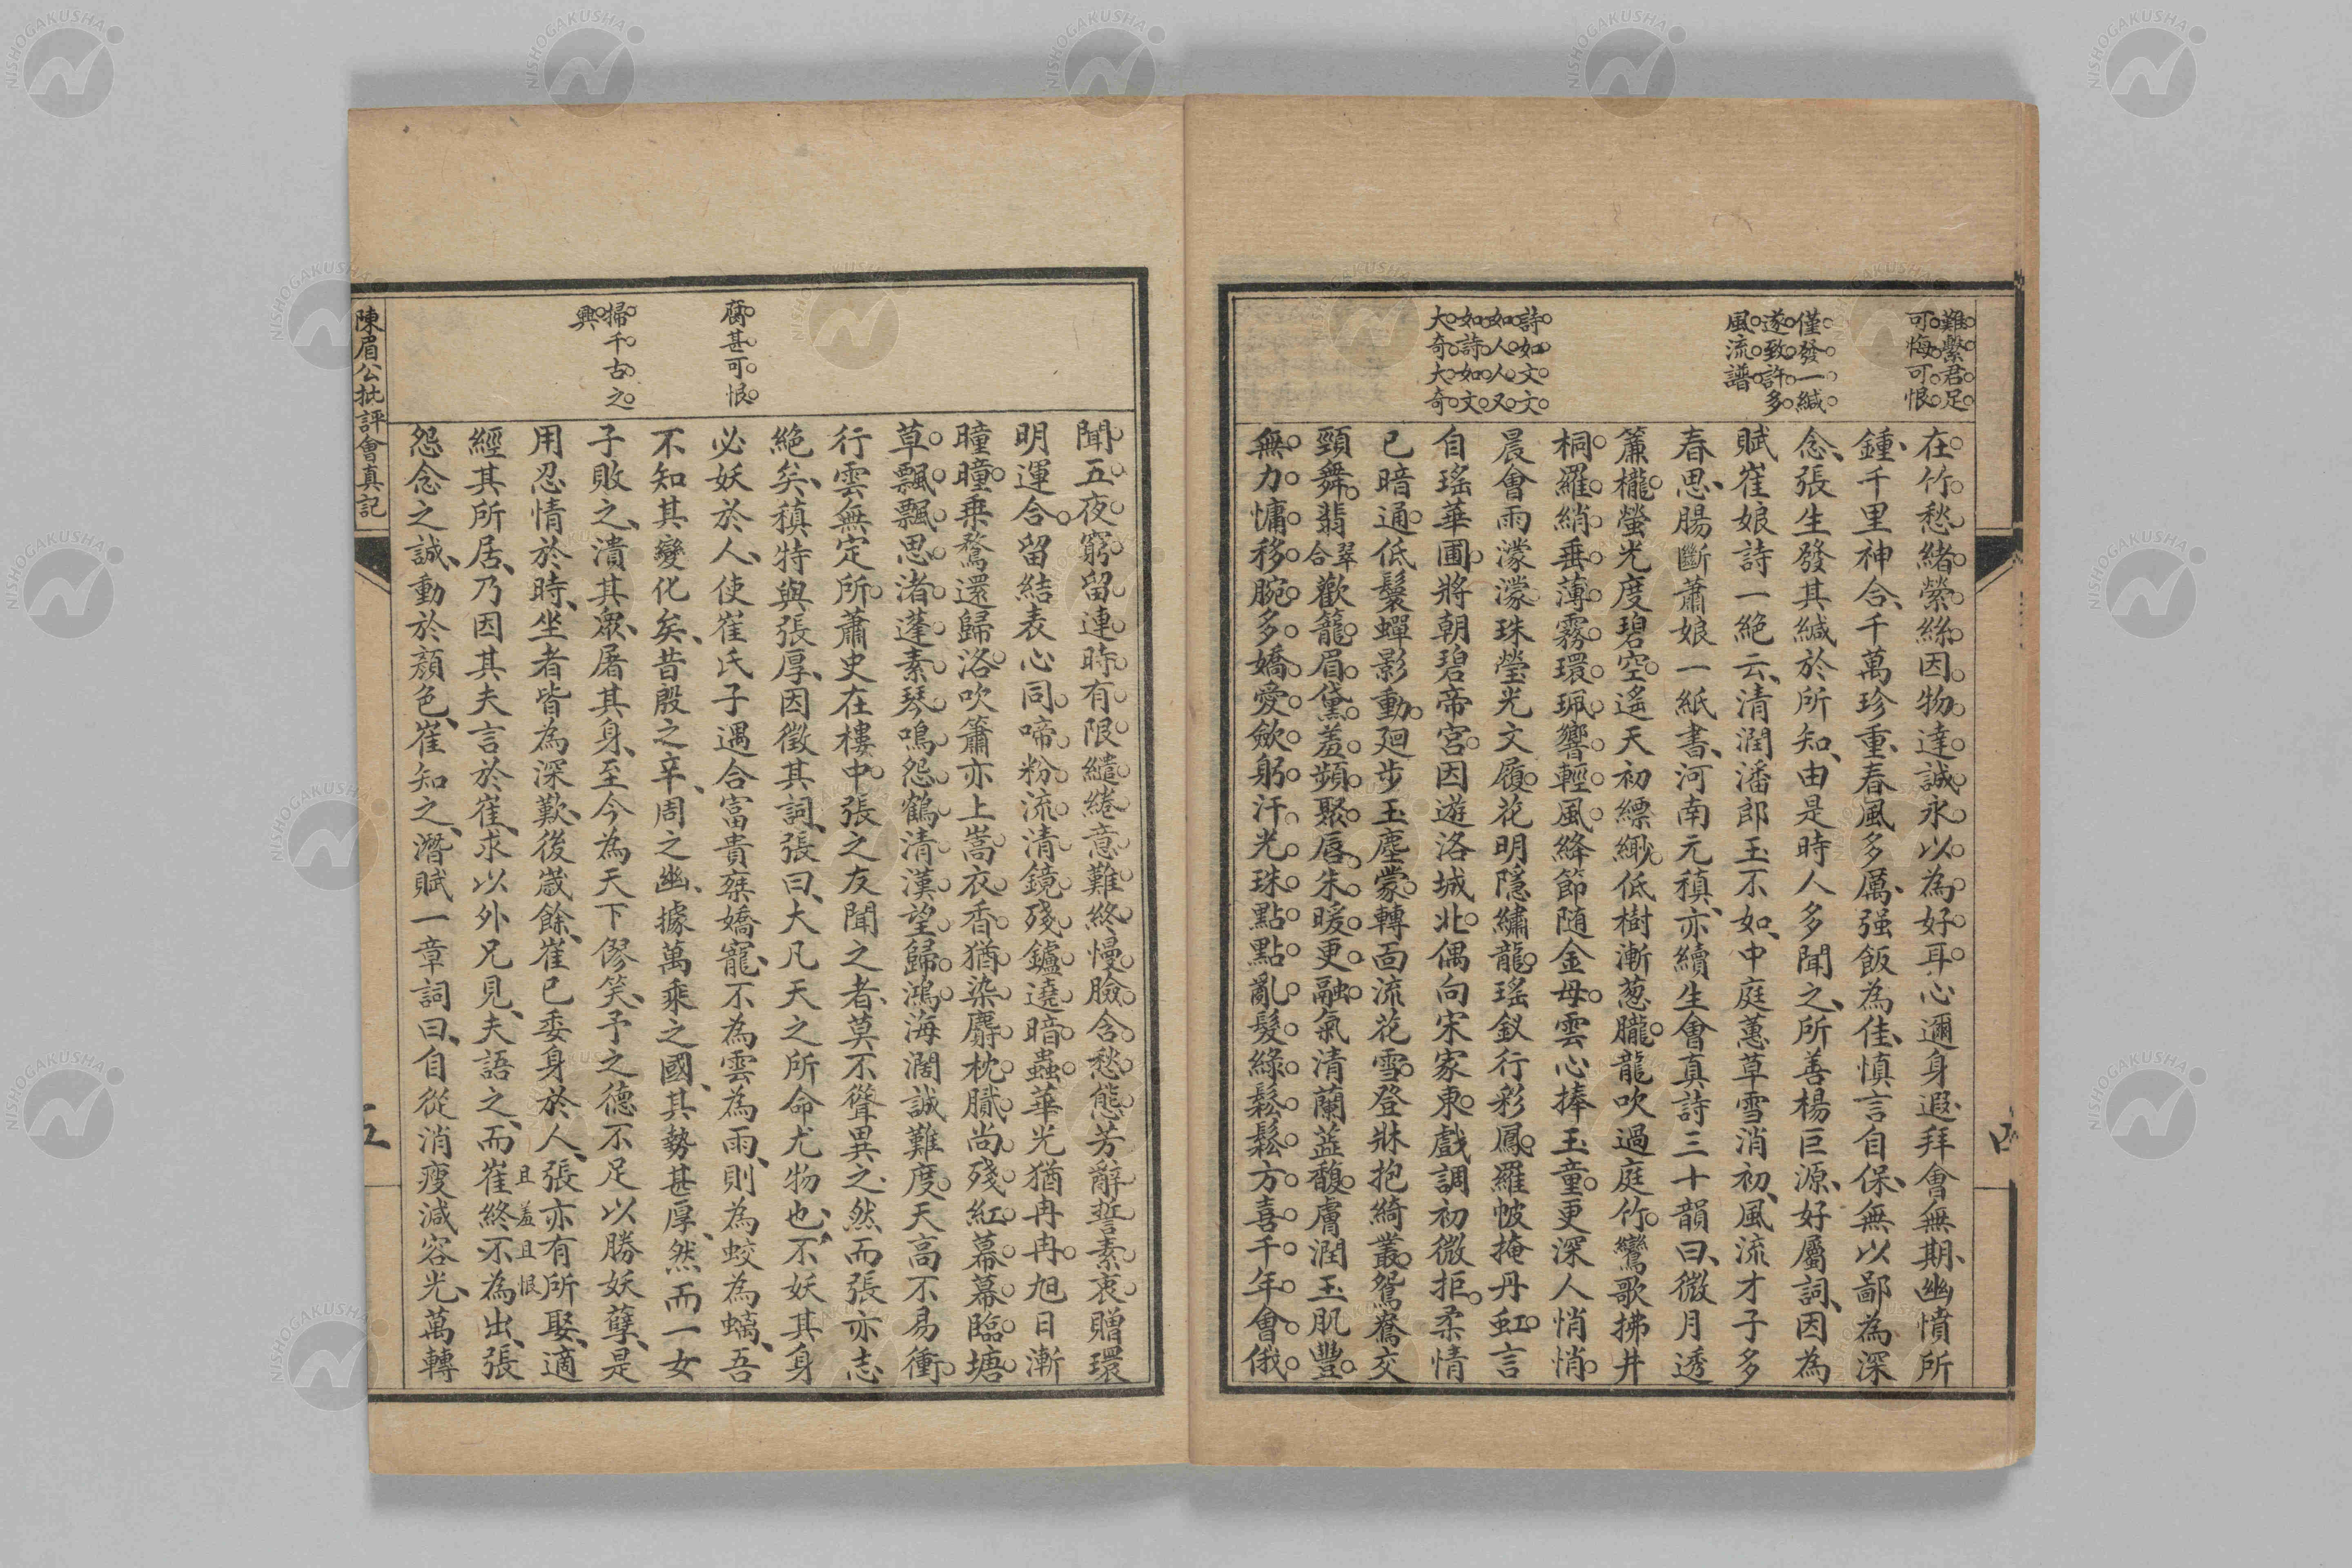 難繫君足
可悔可恨
僅發一緘
遂致許多
風流譜
詩如文文
如人人又
如詩如文
大奇大奇
在竹愁緒縈絲因物達誠永以為好耳心邇身遐拜會無期幽憤所
鍾千里神合千萬珍重春風多厲强飯為佳慎言自保無以鄙為深
念張生發其緘於所知由是時人多聞之所善楊巨源好屬詞因為
賦崔娘詩一絕云清潤潘郎玉不如中庭蕙草雪消初風流才子多
春思腸斷蕭娘一紙書河南元稹亦續生會真詩三十韻曰微月透
簾櫳螢光度碧空遙天初縹緲低樹漸葱朧龍吹過庭竹鸞歌拂井
桐羅綃垂薄霧環珮響輕風絳節随金母雲心捧玉童更深人悄悄
晨會雨濛濛珠瑩光文履花明隱繡龍瑤釵行彩鳳羅帔掩丹虹言
自瑤華圃將朝碧帝宮因遊洛城北偶向宋家東戲調初微拒柔情
已暗通低鬟蟬影動廻步玉塵蒙轉面流花雪登牀抱綺叢鴛鴦交
頸舞翡翠合歡籠眉黛羞頻聚唇朱暖更融氣清蘭蕋馥膚潤玉肌豐
無力慵移腕多嬌愛歛躬汗光珠點點亂髮綠鬆鬆方喜千年會俄
四
腐甚可恨
掃千古之
興
聞五夜窮留連時有限繾綣意難終慢臉含愁態芳辭誓素衷贈環
明運合留結表心同啼粉流清鏡殘鑪遶暗蟲華光猶冉冉旭日漸
曈曈乗鶩還歸洛吹簫亦上嵩衣香猶染麝枕膩尚殘紅幕幕臨塘
草飄飄思渚蓬素琴鳴怨鶴清漢望歸鴻海濶誠難度天高不易衝
行雲無定所蕭史在樓中張之友聞之者莫不聳異之然而張亦志
絕矣稹特與張厚因徵其詞張曰大凡天之所命尤物也不妖其身
必妖於人使崔氏子遇合富貴秉嬌寵不為雲為雨則為蛟為螭吾
不知其變化矣昔殷之辛周之幽據萬乘之國其勢甚厚然而一女
子敗之潰其衆屠其身至今為天下僇笑予之德不足以勝妖孽是
用忍情於時坐者皆為深歎後歲餘崔已委身於人張亦有所娶適
且羞且恨
經其所居乃因其夫言於崔求以外兄見夫語之而崔終不為出張
怨念之誠動於顏色崔知之潛賦一章詞曰自從消瘦減容光萬轉
陳眉公批評會真記
五